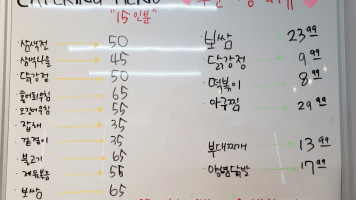 CATERING MENU
"15인분"
삼색전 50
삼색나물 45
닭강정 50
홍어회무침 65
오징어무침 55
잡채 35
겉절이 35
불고기 65
제육볶음 55
보쌈 65
보쌈 23.99
닭강정 9.99
떡볶이 8.99
아구찜 29.99
부대찌개 13.99
양념닭발 17.99